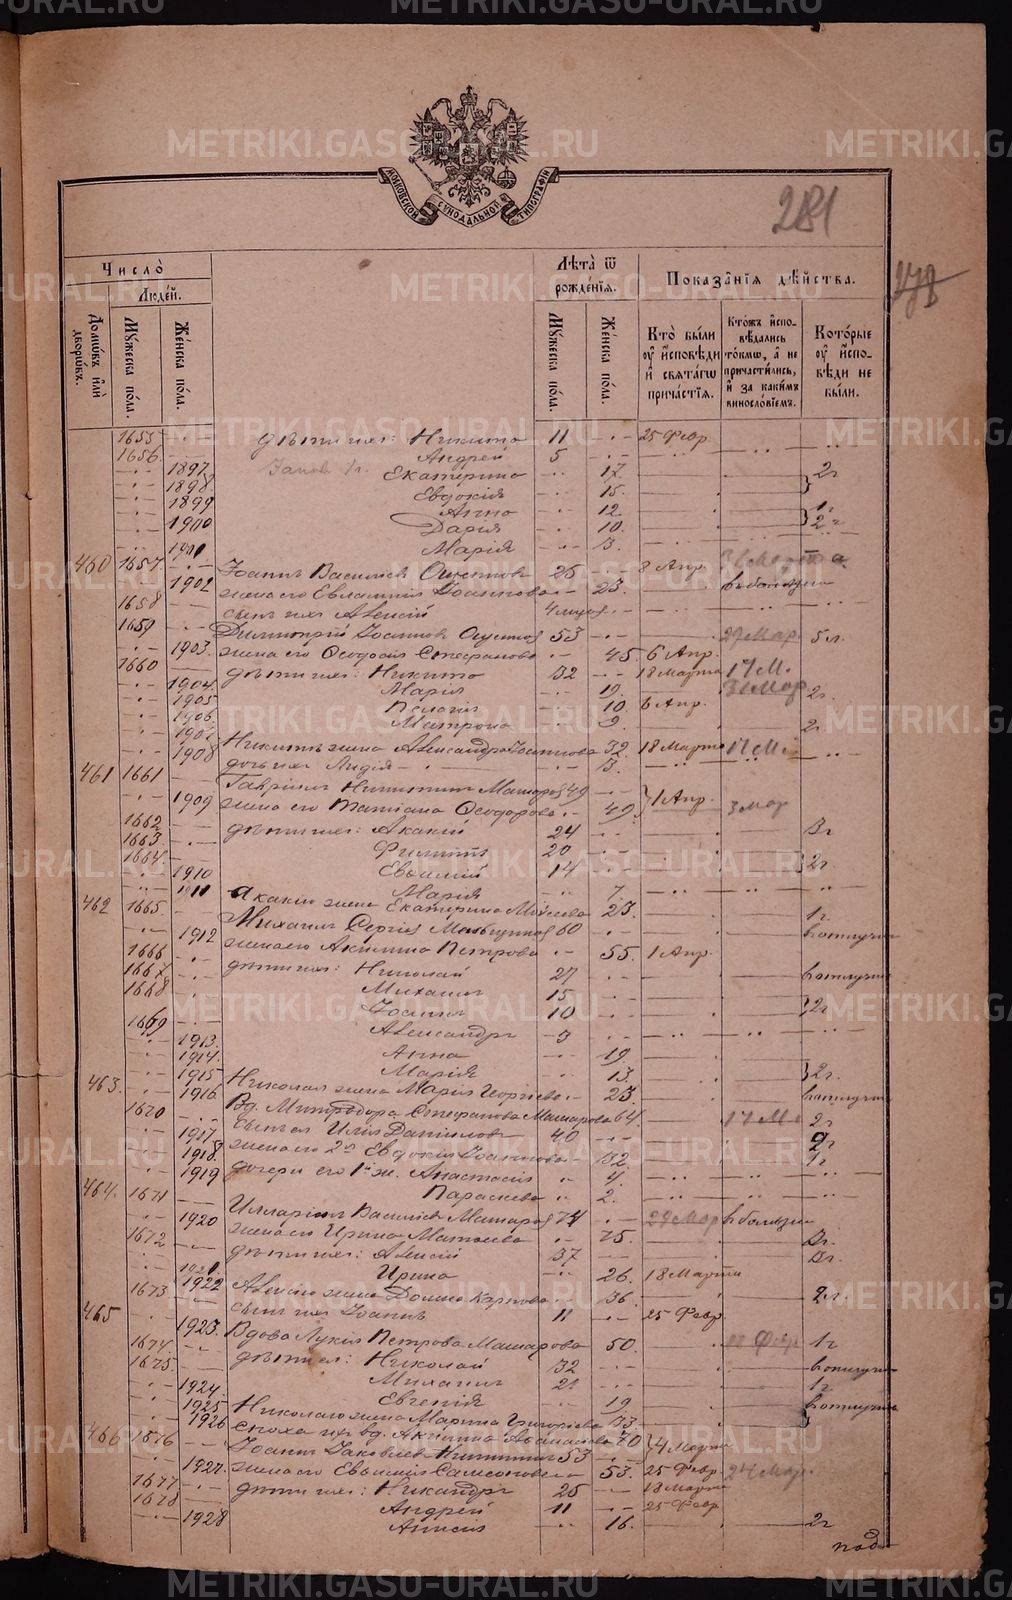 METRIKI.GASO-URAL.RU
МОСКОВСКОЙ СѴНОДАЛЬНОЙ ТИПОГРАФІИ
281
Число̀
Людей.
Домѡвъ илѝ дворѡвъ.
Мꙋжеска по́ла.
Же́нска по́ла.
Лѣта̀ ѿ рожде́нія.
Мꙋжеска по́ла.
Же́нска по́ла.
Показа̑нія дѣ́йства.
Кто̀ бы́ли ᲂу҆ и҆сповѣди и҆ свята́гѡ прича́стія.
Кто́жъ и҆спо-вѣдались то́кмѡ, а҆ не причасти́лись, и҆ за каки́мъ винослов́іемъ.
Кото́рые ᲂу҆ и҆спо-вѣди не бы́ли.
1655 дѣти ихъ: Никита 11 25 Февр.
1656 Андрей 5
1897 Екатерина 17 2 г
1898 Евдокія 15
1899 Анна 12 1 г
1900 Дарія 10 2 г
1901 Марія 3
460 1657 Іоаннъ Василіевъ 26 8 Апр.
1902 жена его Евлампія Іоаннова 23 въ болезни
1658 сынъ ихъ Алексій 4 мѣся
1659 Димитрій Іоанновъ 53 29 Мар. 5 л.
1903 жена его Ѳеодосія Стефанова 45 6 Апр.
1660 дѣти ихъ: Никита 32 18 Марта 17 М.
1904 Марія 19 31 Мар 2 г
1905 Пелагія 10 6 Апр.
1906 Матрона 9 2 г
1907 Никиты жена Александра Іоаннова 32 18 Марта 17 М
1908 дочь ихъ Лидія 3
461 1661 Гавріилъ Никитинъ Машаровъ 49 1 Апр.
1909 жена его Татіана Ѳеодорова 49 3 мар
1662 дѣти ихъ: Акакій 24 3 г
1663 Филиппъ 20
1664 Евѳимій 14 2 г
1910 Марія 7
1911 Акакія жена Екатерина Моѵсеева 23 1 г
462 1665 Михаилъ Сергіевъ 60 въ отлучкѣ
1912 жена его Акилина Петрова 55 1 Апр.
1666 дѣти ихъ: Николай 27 въ отлучкѣ
1667 Михаилъ 15
1668 Іоаннъ 10 2 г
1669 Александръ 9
1913 Анна 19
1914 Марія 13 2 г
1915 Николая жена Марія Георгіева 23 въ отлучкѣ
463 1916 Вд. Митродора Стефанова Машарова 64 17 М 2 г
1670 сынъ ея Илія Даніиловъ 40 2 г
1917 жена его 2я Евдокія Іоаннова 32 1 г
1918 дочери его 1й ж. Анастасія 4
1919 Параскева 2
464 1671 Илларіонъ Василіевъ Машаровъ 74 29 Мар въ болезни
1920 жена его Ирина Матѳеева 75 3 г
1672 дѣти ихъ: Алексій 37 3 г
1921 Ирина 26 18 Марта
1922 Алексія жена Домна Карпова 36 2 г.
1673 сынъ ихъ Іоаннъ 11 25 Февр.
465 1923 Вдова Лукія Петрова Машарова 50 1 г
1674 дѣти ея: Николай 32 въ отлучкѣ
1675 Михаилъ 21 1 г
1924 Евгенія 19 въ отлучкѣ
1925 Николая жена Марина Григоріева 33
1926 сноха ихъ вд. Акилина Аѳанасіева 70 4 Марта
466 1676 Іоаннъ Іаковлевъ Никитинъ 53
1927 жена его Евѳимія Самсонова 53 25 Февр 24 Мар.
1677 дѣти ихъ: Никандръ 26 18 Марта
1678 Андрей 11 25 Февр.
1928 Анисія 16 2 г
под